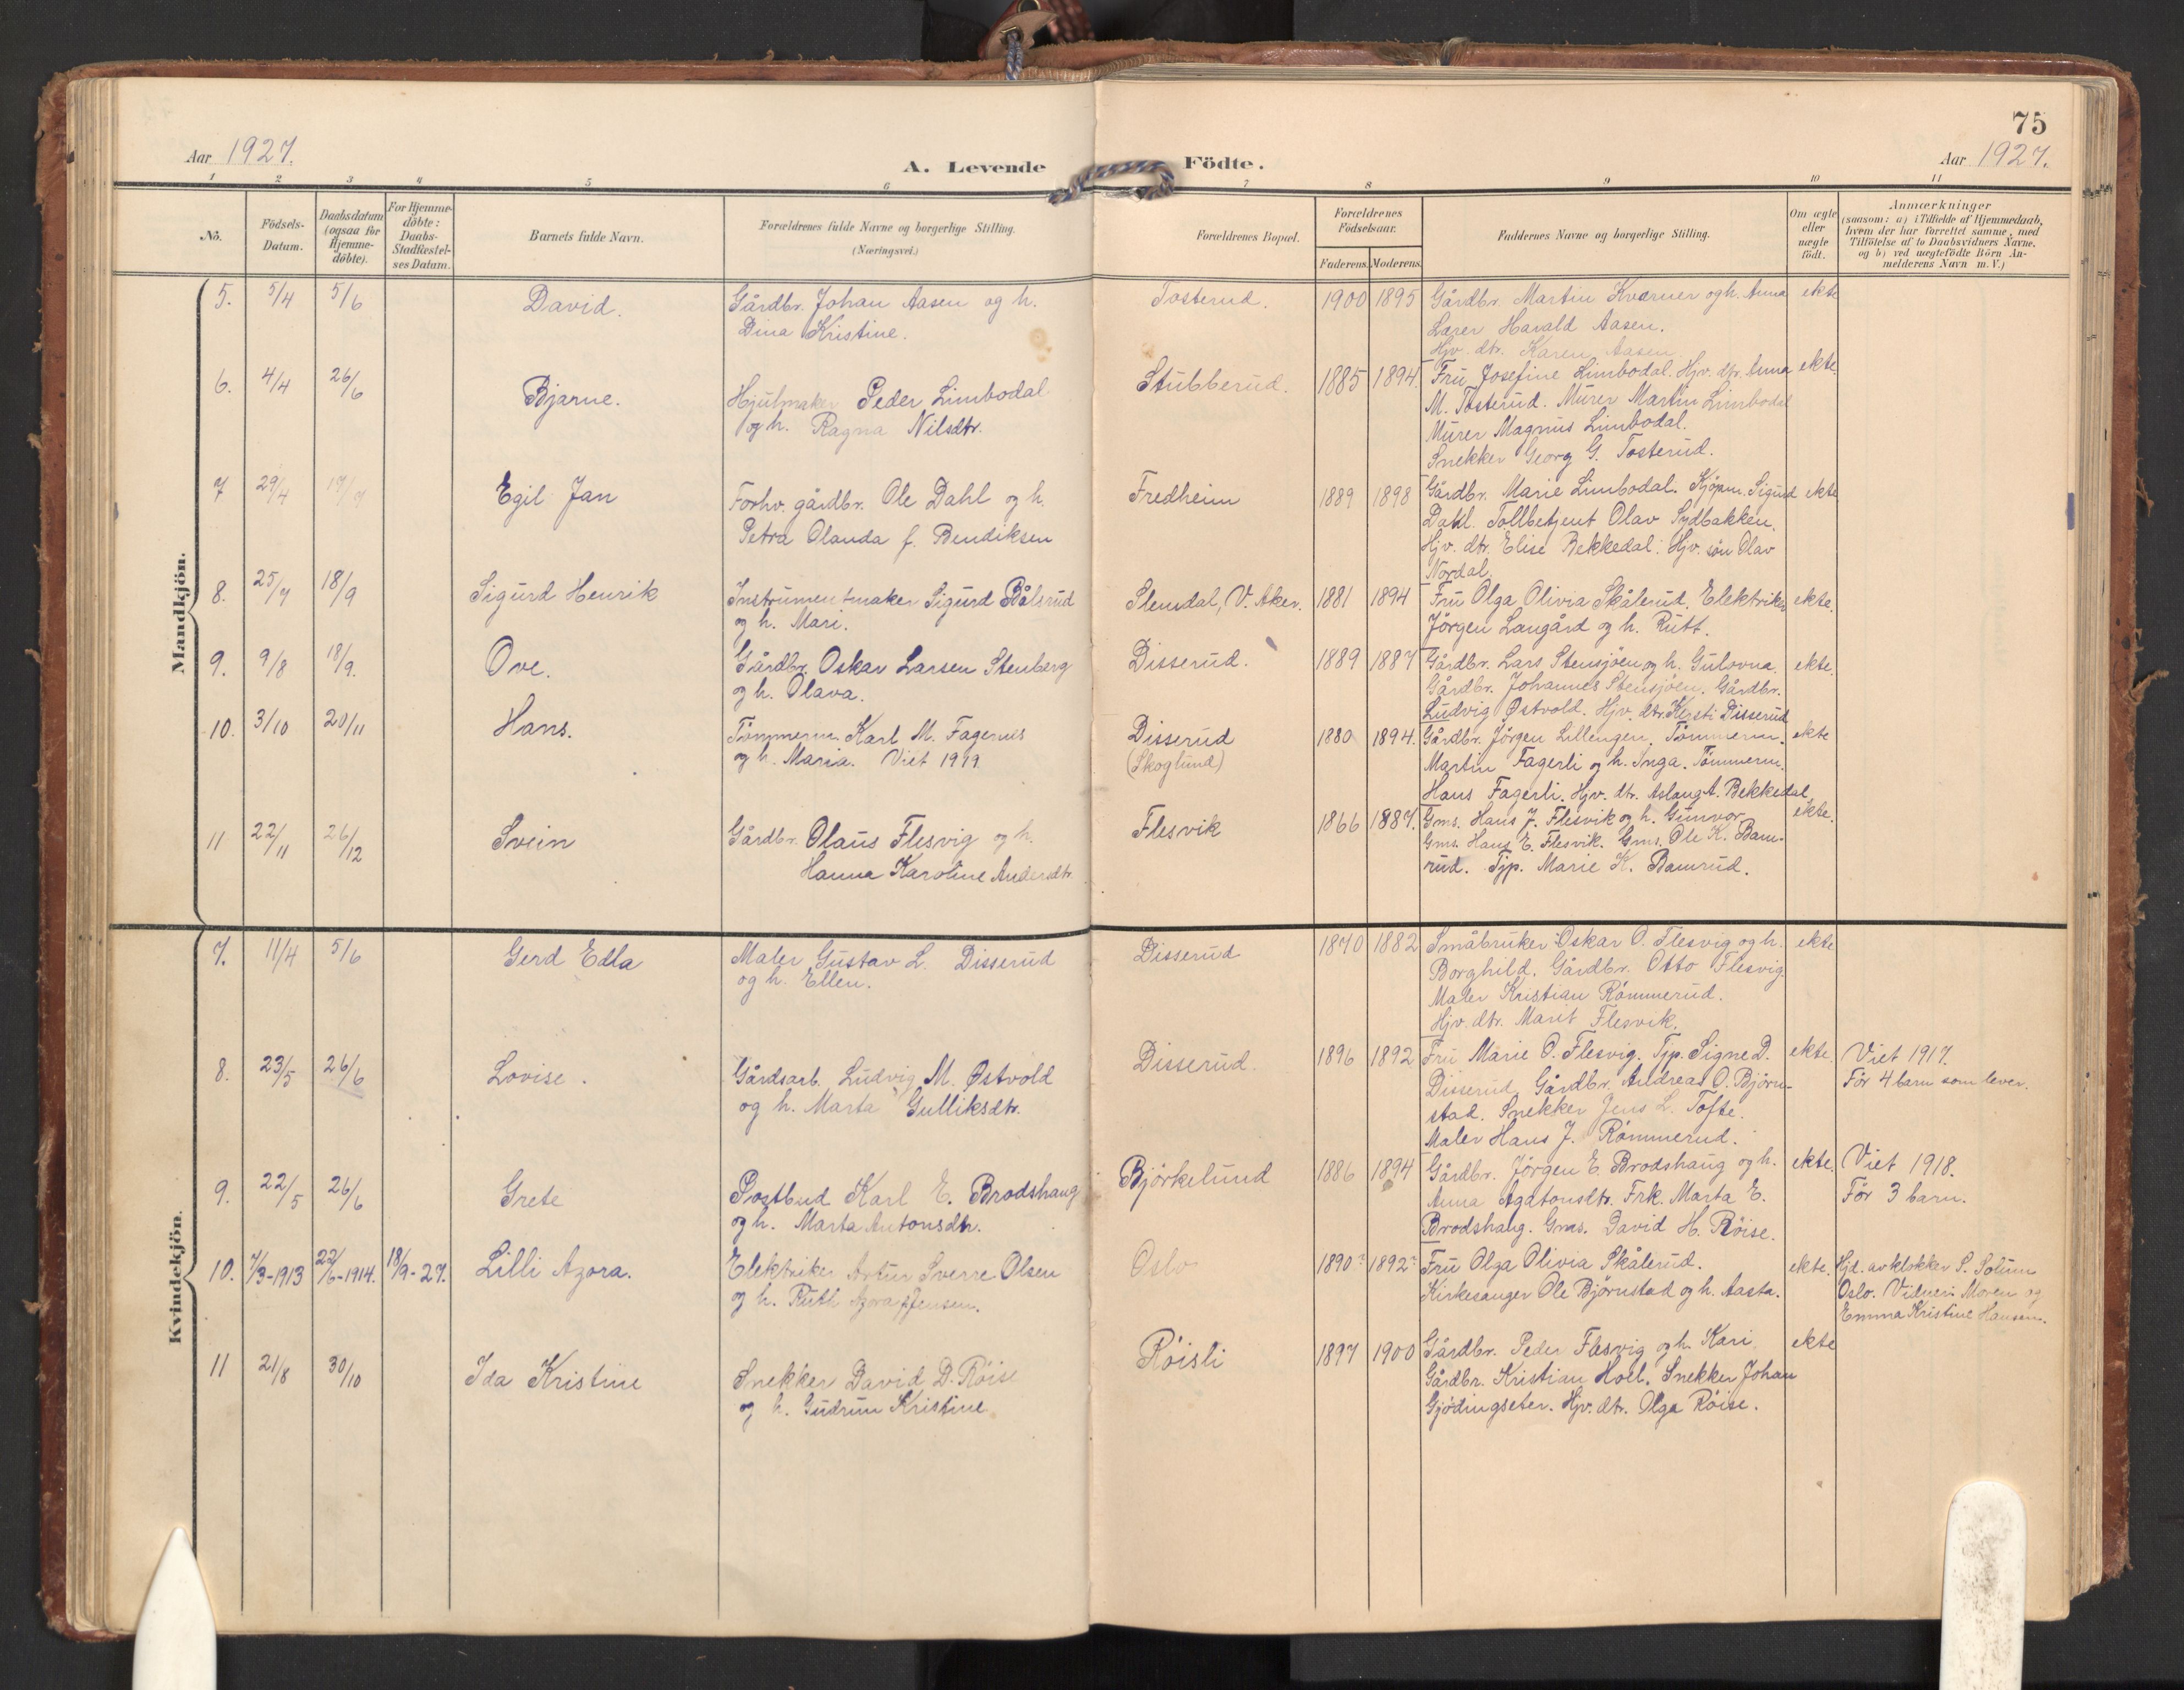 75
Aar 1927.
A. Levende Födte.
Aar 1927.
1 2 3 4 5 6 7 8 9 10 11
No.
Födsels-Datum.
Daabsdatum (ogsaa for Hjemme-döbte).
For Hjemme-döbte: Daabs-Stadfæstel-ses Datum.
Barnets fulde Navn.
Forældrenes fulde Navne og borgerlige Stilling.
(Næringsvei.)
Forældrenes Bopæl.
Forældrenes Födselsaar.
Faderens. Moderens.
Faddernes Navne og borgerlige Stilling.
Om ægte eller uægte födt.
Anmærkninger
(saasom: a) i Tilfælde af Hjemmedaab,
hvem der har forrettet samme, med
Tilföielse af to Daabsvidners Navne.
og b) ved uægtefödte Börn An-
melderens Navn m. V.)
Mandkjön.
5. 5/4 5/6 David. Gårdbr. Johan Aasen og h. Tosterud. 1900 1895 Gårdbr. Martin Kværner og h. Anna ekte
Dina Kristine. Lærer Harald Aasen.
Hjv. dtr. Karen Aasen
6. 4/4 26/6 Bjarne. Hjulmaker Peder Limbodal Stubberud. 1885 1894. Fru Josefine Limbodal. Hjv. dtr. Anna ekte.
og h. Ragna Nilsdtr. M. Tosterud. Murer Martin Limbodal
Murer Magnus Limbodal.
Snekker Georg G. Tosterud.
7 29/4 17/7 Egil Jan Forhv. gårdbr. Ole Dahl og h. Fredheim 1889 1898 Gårdbr. Marie Limbodal. Kjöpm. Sigurd ekte
Petra Olanda f. Bendiksen Dahl. Tollbetjent Olav Sydbakken.
Hjv. dtr. Elise Bekkedal. Hjv. sön Olav
Nordal.
8. 25/7 18/9 Sigurd Henrik Instrumentmaker Sigurd Bålsrud Slemdal, V. Aker. 1881 1894 Fru Olga Olivia Skålerud. Elektriker ekte.
og h. Mari. Jörgen Langård og h. Rutt.
9. 9/8 18/9. Ove. Gårdbr. Oskar Larsen Stenberg Disserud. 1889 1887 Gårdbr. Lars Stensjöen og h. Gulovna ekte.
og h. Olava. Gårdbr. Johannes Stensjöen. Gårdbr.
Ludvig Østvold. Hjv. dtr. Kersti Disserud
10. 3/10 20/11 Hans. Tömmerm. Karl M. Fagernes Disserud 1880 1894. Gårdbr. Jörgen Lillengen. Tömmerm. ekte
og h. Maria. Viet 1919. (Skoglund) Martin Fagerli og h. Inga. Tömmerm.
Hans Fagerli. Hjv. dtr. Aslaug A. Bekkedal.
11 22/11 26/12 Svein Gårdbr. Olaus Flesvig og h. Flesvik 1866 1887. Gms. Hans J. Flesvik og h. Gunvor ekte.
Hanna Karoline Andersdtr. Gms. Hans E. Flesvik. Gms. Ole K. Bam-
rud. Tjp. Marie K. Bamrud.
Kvindekjön.
7. 11/4 5/6 Gerd Edla Maler Gustav L. Disserud Disserud 1870 1882 Småbruker Oskar O. Flesvig og h. ekte
og h. Ellen. Borghild. Gårdbr. Otto Flesvig.
Maler Kristian Römmerud.
Hjv. dtr. Marit Flesvik.
8. 23/5 26/6 Lovise. Gårdsarb. Ludvig M. Østvold Disserud. 1896 1892 Fru Marie O. Flesvig. Tjp. Signe D. ekte. Viet 1917.
og h. Marta Gulliksdtr. Disserud. Gårdbr. Andreas O. Björn- För 4 barn som lever.
stad. Snekker Jens L. Tofte.
Maler Hans J. Römmerud.
9. 22/5 26/6 Grete Postbud Karl E. Brodshaug Björkelund 1886 1894 Gårdbr. Jörgen E. Brodshaug og h. ekte. Viet 1918.
og h. Marta Antonsdtr. Anna Agatonsdtr. Frk. Marta E. För 3 barn.
Brodshaug. Gms. David H. Röise.
10. 7/3-1913 22/6-1914. 18/9-27. Lilli Azora. Elektriker Artur Sverre Olsen Oslo 1890? 1892? Fru Olga Olivia Skålerud. ekte. Hjd. av klokker S. Solum
og h. Ruth Azora f. Jensen. Kirkesanger Ole Björnstad og h. Aasta. Oslo. Vidner: Moren og
Emma Kristine Hansen.
11 21/8 30/10 Ida Kristine Snekker David D. Röise Röisli 1897 1900 Gårdbr. Peder Flesvig og h. Kari ekte
og h. Gudrun Kristine Gårdbr. Kristian Hoel. Snekker Johan
Gjödingseter. Hjv. dtr. Olga Röise.